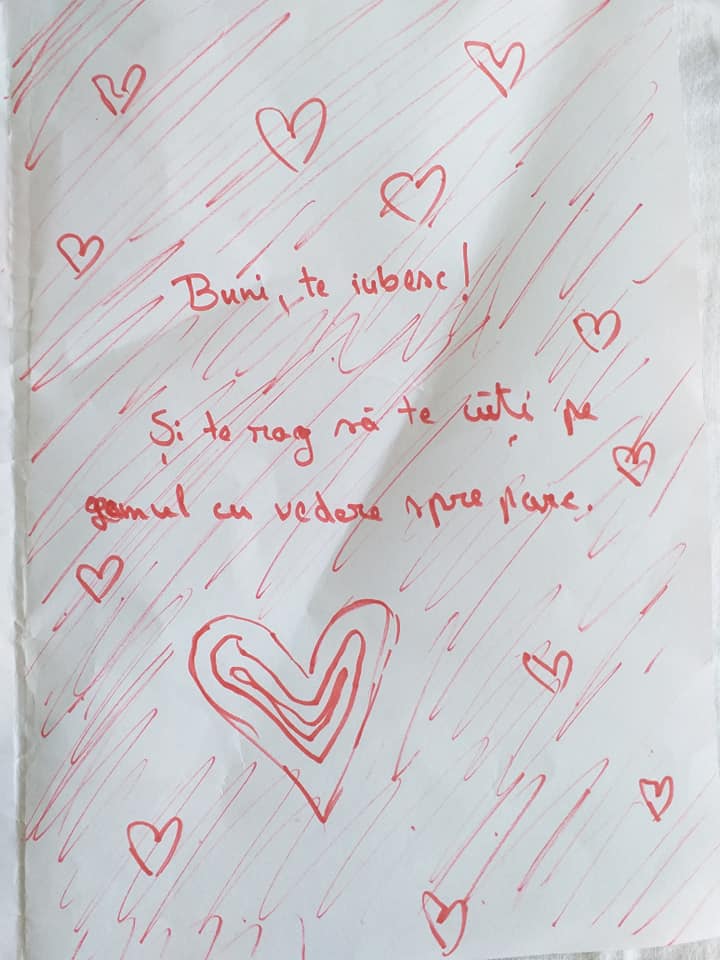 Buni, te iubesc!
Și te rog să te uiți pe
geamul cu vedere spre parc.